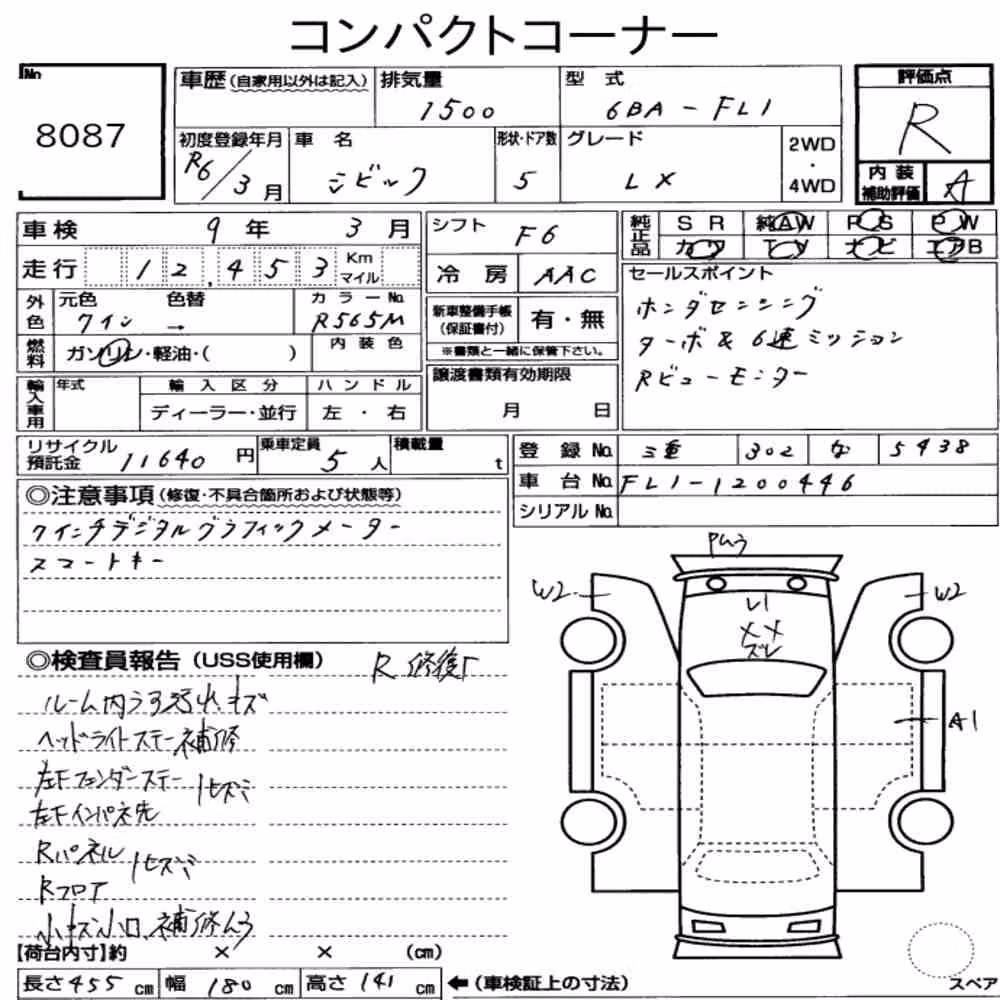 コンパクトコーナー
No.
8087
車歴 (自家用以外は記入)
排気量
1500
型 式
6BA-FL1
評価点
R
初度登録年月
R6/3月
車 名
シビック
形状・ドア数
5
グレード
LX
2WD
・
4WD
内 装
補助評価
A
車検 9年 3月
シフト F6
純正品
SR 純AW PS PW
カワ TV ナビ エアB
走行 12,453 Km マイル
冷 房 AAC
セールスポイント
ホンダセンシング
ターボ & 6速ミッション
Rビューモニター
外色
元色 色替
ワイン →
カラーNo.
R565M
新車整備手帳
(保証書付)
有・無
※書類と一緒に保管下さい。
燃料
ガソリン・軽油・( )
内 装 色
輸入車用
年式
輸 入 区 分
ディーラー・並行
ハ ン ド ル
左 ・ 右
譲渡書類有効期限
月 日
リサイクル
預託金 11640 円
乗車定員
5 人
積載量
t
登 録 No. 三重 302 な 5438
車 台 No. FL1-1200446
シリアル No.
◎注意事項 (修復・不具合箇所および状態等)
7インチデジタルグラフィックメーター
スマートキー
◎検査員報告 (USS使用欄)
R 修復
ルーム内うす汚れキズ
ヘッドライトステー補修
左Fフェンダーステー
左Fインパネ先
ヒズミ
Rパネル
Rフロア
ヒズミ
小キズ小凹、補修ムラ
Pムラ
W2
W2
レ1
××
ズレ
A1
【荷台内寸】約 × × (cm)
長さ 455 cm 幅 180 cm 高さ 141 cm
←(車検証上の寸法)
スペア